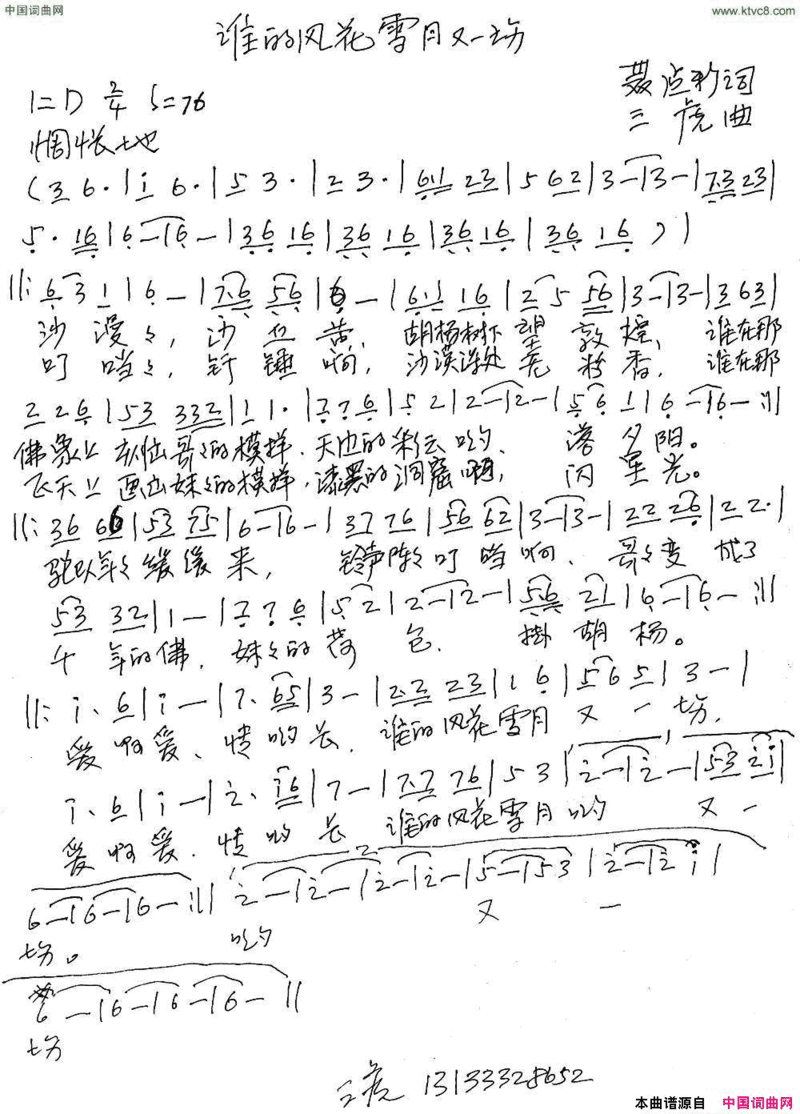 中国词曲网
www.ktvc8.com
谁的风花雪月又一场
1=D 2/4 ♩=76
词
三虎 曲
惆怅地
(3 6· | i 6· | 5 3· | 2 3· | 611 23 | 5 62 | 3 — | 3 — | 723 23 |
5· 16 | 6 — | 6 — | 36 16 | 36 16 | 36 16 | 36 16 ) |
||: 6 3 1 | 6 — | 7·6 56 | 6 — | 6·1 16 | 2 5 56 | 3 — | 3 — | 3 63 |
沙漫々，沙丘黄，胡杨树下望敦煌，谁在那
叮咣々，钎锤响，沙漠深处 香，谁在那
2 2 6 | 53 332 | 1 1· | 7 7 6 | 5 2 | 2 — | 2 — | 5 6 1 | 6 — | 6 — :||
佛象上 哥々的模样，天边的彩云哟，落夕阳。
飞天上画出妹々的模样，漆黑的洞窟啊，闪星光。
||: 36 66 | 53 75 | 6 — | 6 — | 37 76 | 56 62 | 3 — | 3 — | 22 26 | 2 2· |
驼队年々缓缓来，铃声阵々叮当响，哥々变成了
53 32 | 1 — | 7 7 6 | 5 2 | 2 — | 2 — | 56 21 | 6 — | 6 — :||
千年的佛，妹々的荷包，掛胡杨。
||: i· 6 | i — | 7· 65 | 3 — | 2·2 23 | 1 6 | 5 6 5 | 3 — |
爱啊爱，情哟长，谁的风花雪月又一场，
i· 6 | i — | 2· i6 | 7 — | 7·7 76 | 5 3 | 2 — | 2 — | 53 2i |
爱啊爱，情哟长，谁的风花雪月哟又一
6 — | 6 — | 6 — :|| 2 — | 2 — | 2 — | 2 — | 5 — | 5 3 | 2 — | 2 i |
场。哟又一
6 — | 6 — | 6 — | 6 — ||
场
三虎 13133328652
本曲谱源自 中国词曲网